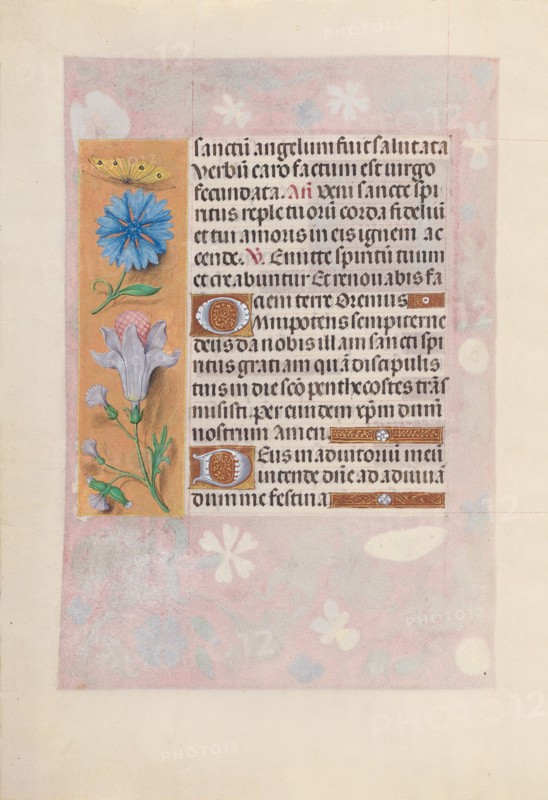 sanctū angelum fuit salutata
verbū caro factum est uirgo
fecundata. Añ veni sancte spi
ritus reple tuorū corda fideliū
et tui amoris in eis ignem ac
cende. V. Emitte spiritū tuum
et creabuntur Et renouabis fa
ciem terre Oremus
OMnipotens sempiterne
deus da nobis illam sancti spi
ritus gratiam quā discipulis
tuis in die scō penthecostes trās
misisti. Per eundem xp̄m dn̄m
nostrum Amen
DEus in adiutoriū meū
intende dn̄e ad adiuuā
dum me festina
PHOTO12